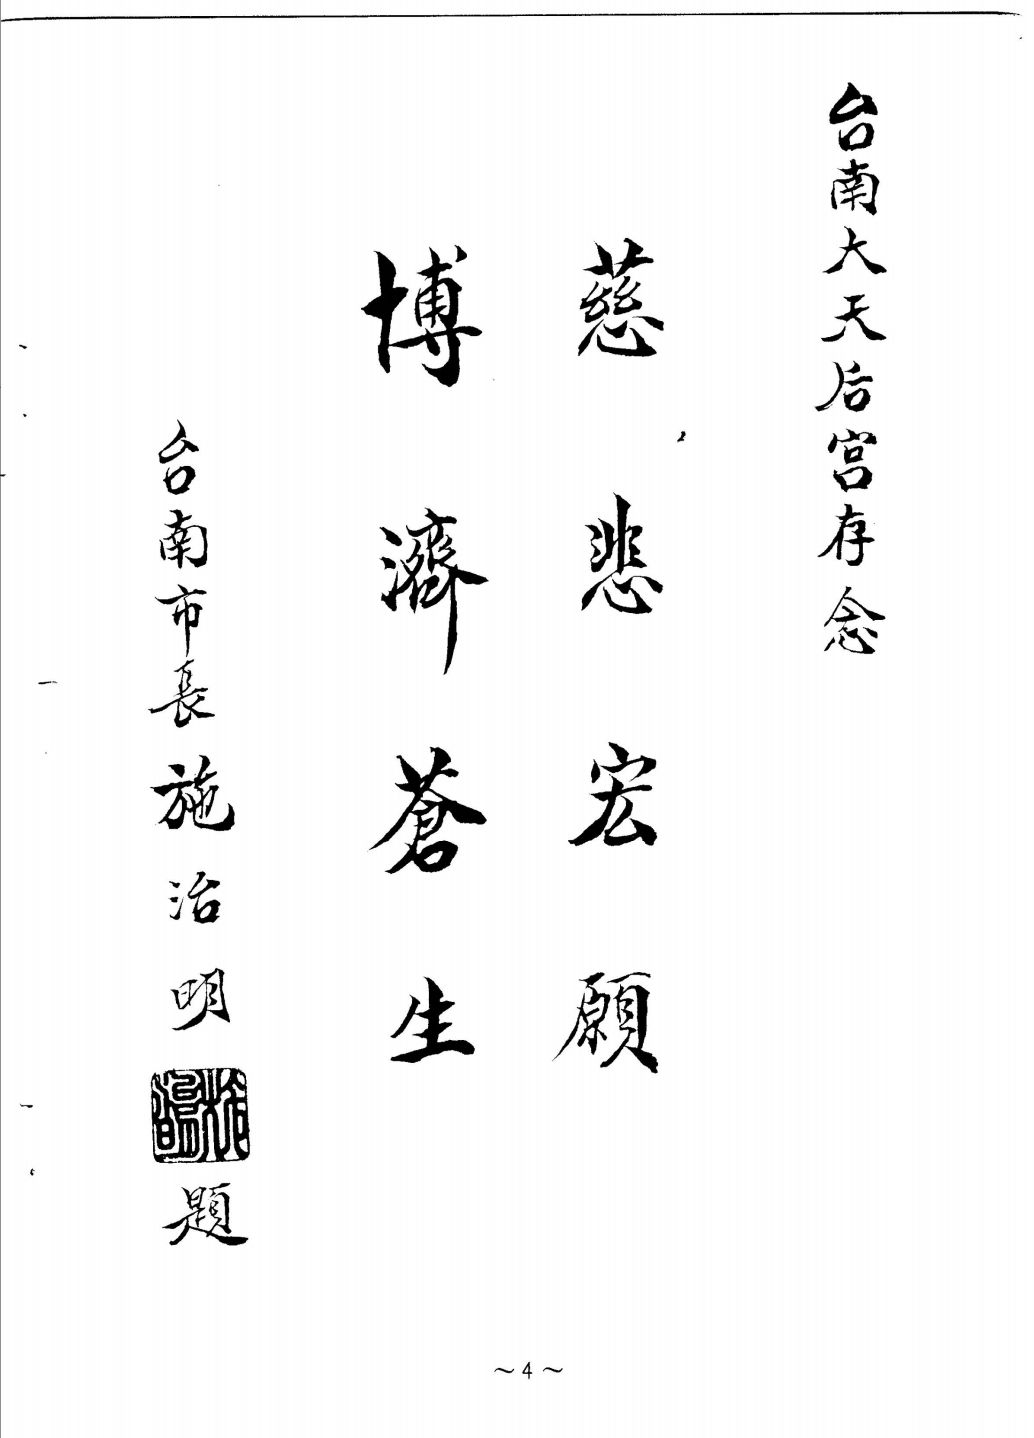 台南大天后宮存念
慈悲宏願
博濟蒼生
台南市長施治明題
~4~